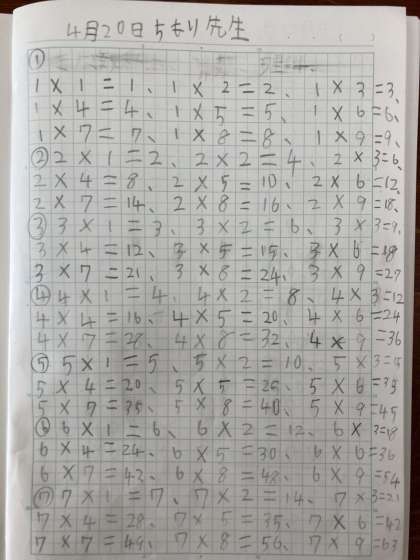 4月20日ちもり先生
①
1×1=1、1×2=2、1×3=3、
1×4=4、1×5=5、1×6=6、
1×7=7、1×8=8、1×9=9、
②2×1=2、2×2=4、2×3=6、
2×4=8、2×5=10、2×6=12、
2×7=14、2×8=16、2×9=18、
③3×1=3、3×2=6、3×3=9、
3×4=12、3×5=15、3×6=18
3×7=21、3×8=24、3×9=27
④4×1=4、4×2=8、4×3=12
4×4=16、4×5=20、4×6=24
4×7=28、4×8=32、4×9=36
⑤5×1=5、5×2=10、5×3=15
5×4=20、5×5=25、5×6=35
5×7=35、5×8=40、5×9=45
⑥6×1=6、6×2=12、6×3=18
6×4=24、6×5=30、6×6=36
6×7=42、6×8=48、6×9=54
⑦7×1=7、7×2=14、7×3=21
7×4=28、7×5=35、7×6=42
7×7=49、7×8=56、7×9=63